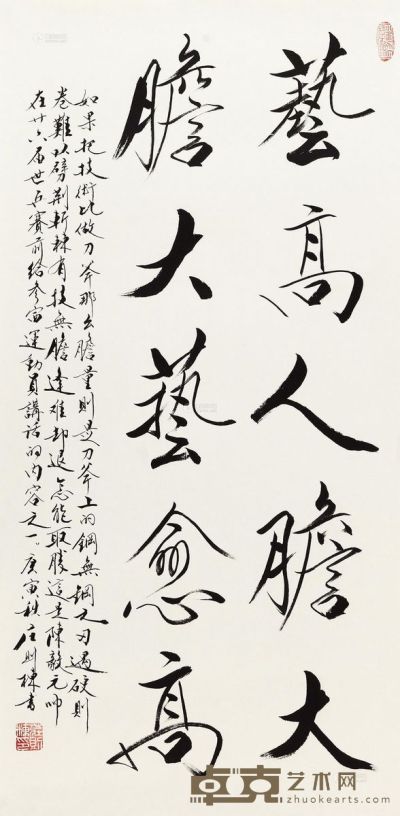 藝高人膽大
膽大藝愈高
如果把技術比做刀斧那么膽量則是刀斧上的鋼無鋼之刃遇硬則
卷難以劈荆斬棘有技無膽逢难却退怎能取勝這是陳毅元帥
在廿六届世乒赛前给参賽運動員講話的内容之一庚寅秋庄则棟書
卓克艺术网
zhuokearts.com